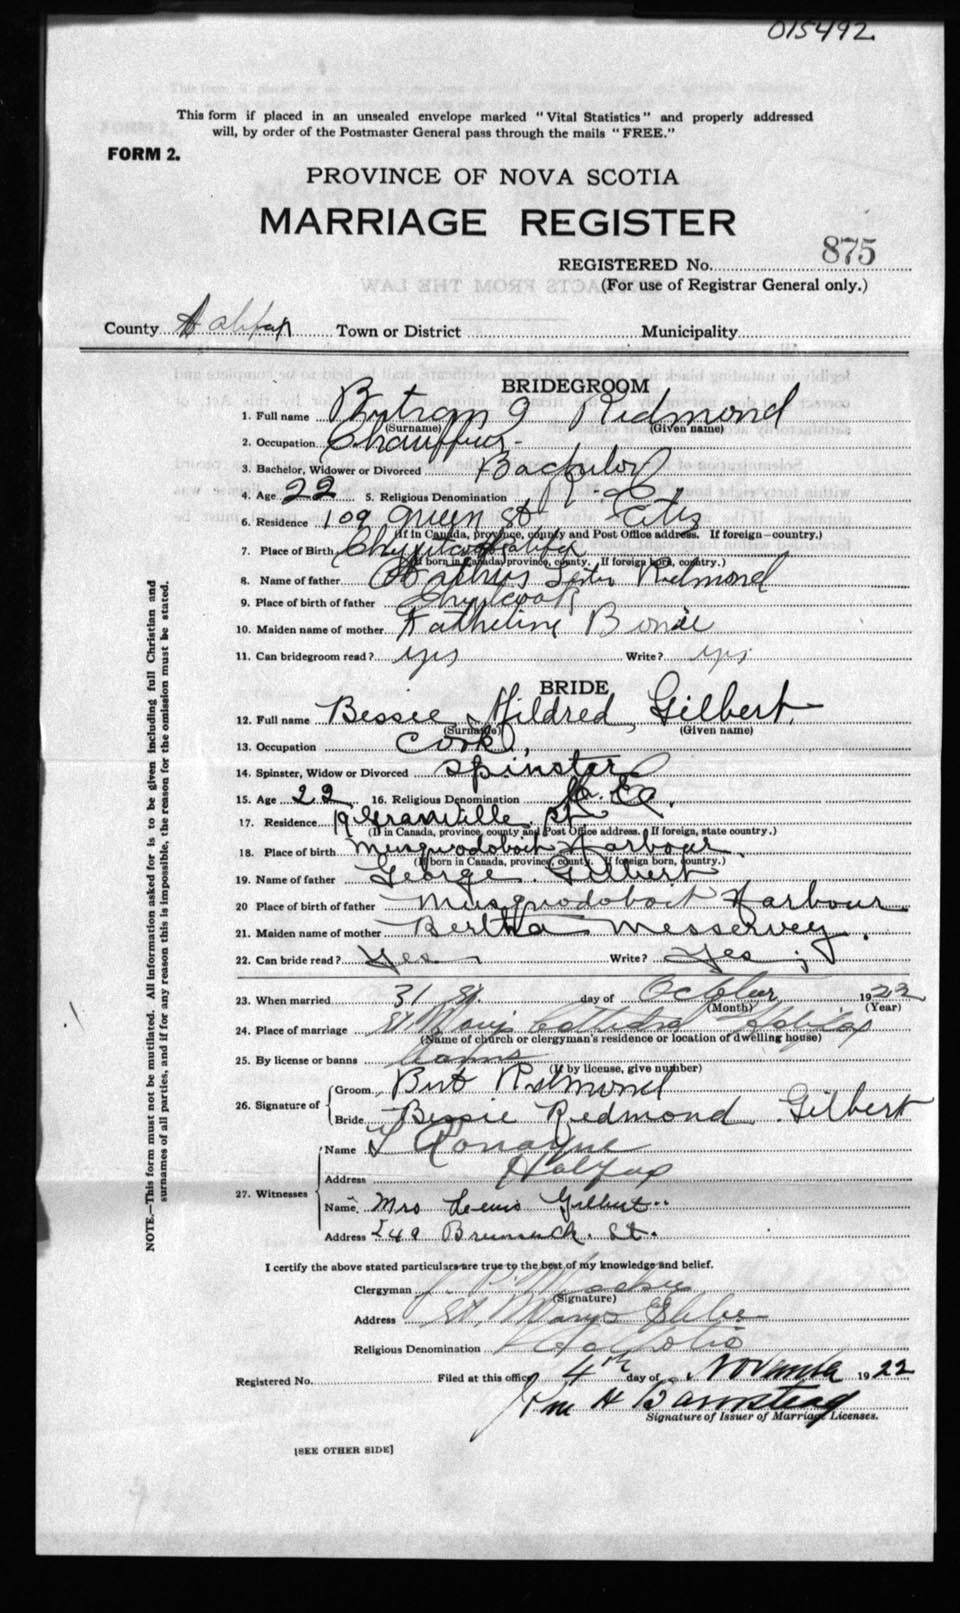 015492.
This form if placed in an unsealed envelope marked "Vital Statistics" and properly addressed
will, by order of the Postmaster General pass through the mails "FREE."
FORM 2.
PROVINCE OF NOVA SCOTIA
MARRIAGE REGISTER
REGISTERED No. 875
(For use of Registrar General only.)
County Halifax Town or District Municipality
BRIDEGROOM
1. Full name Redmond
(Surname) (Given name)
2. Occupation Chauffeur
3. Bachelor, Widower or Divorced Bachelor
4. Age 22 5. Religious Denomination R. C.
6. Residence 109 Green St,
(If in Canada, province, county and Post Office address. If foreign—country.)
7. Place of Birth Halifax
(If born in Canada, province, county. If foreign born, country.)
8. Name of father Redmond
9. Place of birth of father
10. Maiden name of mother
11. Can bridegroom read? yes Write? yes
BRIDE
12. Full name Bessie Mildred Gilbert.
(Surname) (Given name)
13. Occupation Cook,
14. Spinster, Widow or Divorced Spinster
15. Age 22 16. Religious Denomination
17. Residence 19 Granville St
(If in Canada, province, county and Post Office address. If foreign, state country.)
18. Place of birth Musquodoboit Harbour.
(If born in Canada, province, county. If foreign born, country.)
19. Name of father George Gilbert
20 Place of birth of father Musquodoboit Harbour
21. Maiden name of mother Bertha Messervey.
22. Can bride read? Yes Write? Yes
23. When married 31 St. day of October 1922
(Month) (Year)
24. Place of marriage St Mary's Cathedral Halifax
(Name of church or clergyman's residence or location of dwelling house)
25. By license or banns Banns
(If by license, give number)
26. Signature of Groom Bert Redmond
Bride Bessie Redmond Gilbert
27. Witnesses Name L Ronayne
Address Halifax
Name Mrs Lewis Gilbert
Address 249 Brunswick St.
I certify the above stated particulars are true to the best of my knowledge and belief.
Clergyman
(Signature)
Address St Marys Glebe
Religious Denomination Catholic
Registered No. Filed at this office 4th day of November 1922
Barnstead
Signature of Issuer of Marriage Licenses.
[SEE OTHER SIDE]
NOTE.—This form must not be mutilated. All information asked for is to be given including full Christian and
surnames of all parties, and if for any reason this is impossible, the reason for the omission must be stated.